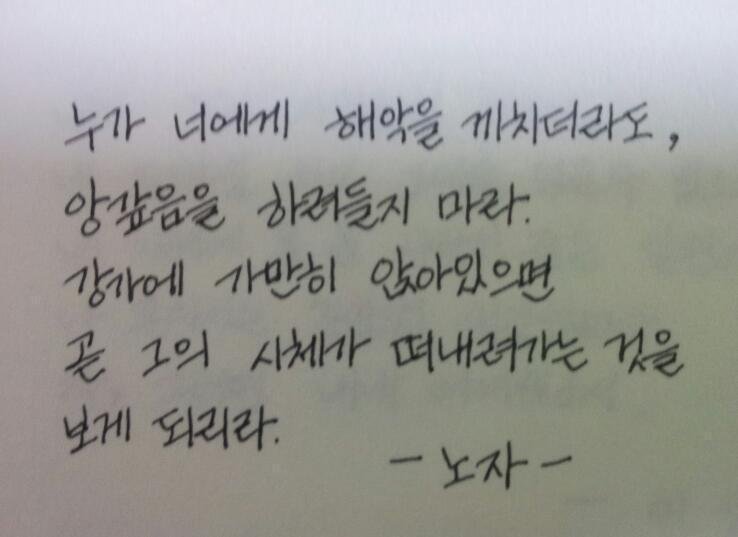 누가 너에게 해악을 끼치더라도,
앙갚음을 하려들지 마라.
강가에 가만히 앉아있으면
곧 그의 시체가 떠내려가는 것을
보게 되리라.
- 노자 -